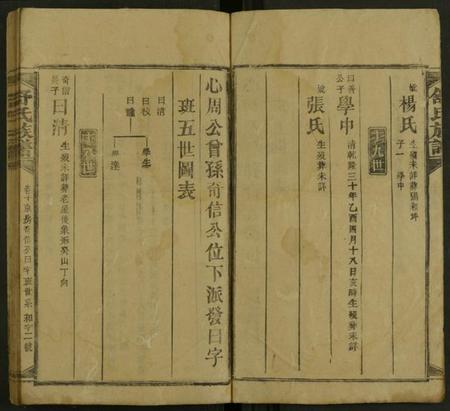 舒氏族譜
娶楊氏
生殁未詳葬
子一 學中
十五世
曰善公子學中
清乾隆三十年乙酉四月十八日亥時生殁葬未詳
娶張氏
生殁葬未詳
心周公曾孫奇信公位下派發曰字
班五世圖表
曰清
曰校
學生
學達
奇信長子曰清
生殁未詳葬老屋後象形癸山丁向
舒氏族譜
卷十京房奇信公曰字班世系 和字二號